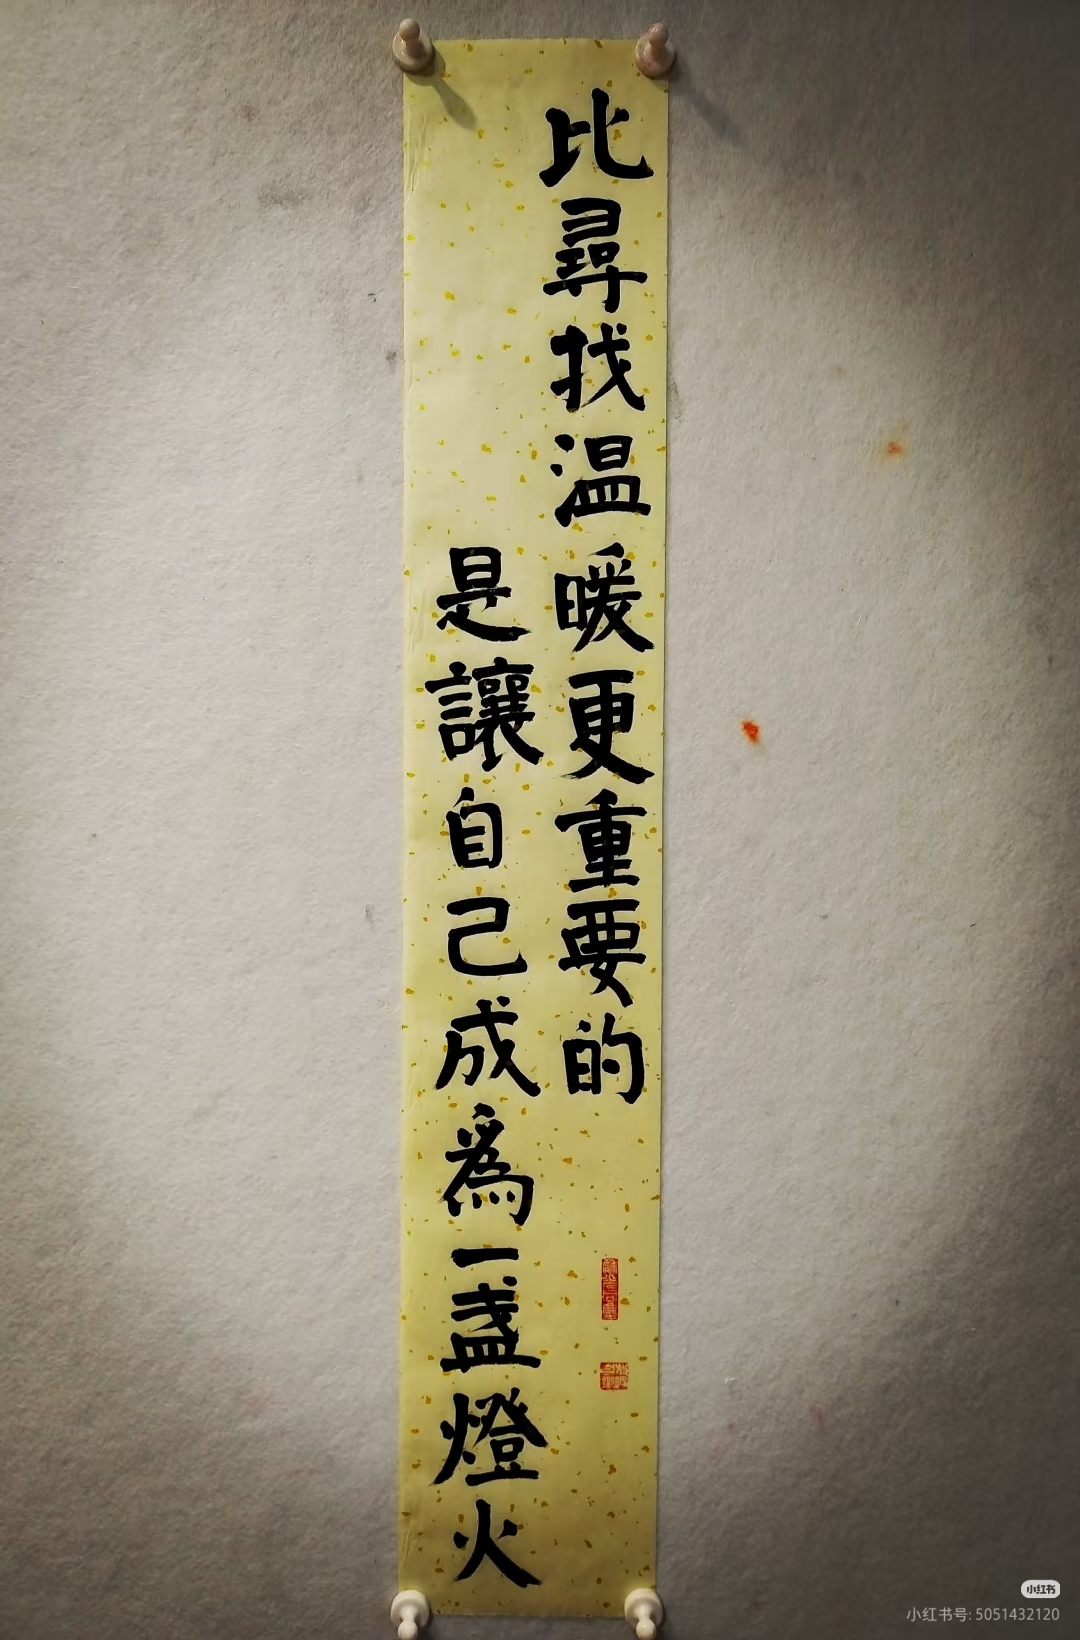 比尋找温暖更重要的
是讓自己成爲一盏燈火
小红书
小红书号: 5051432120